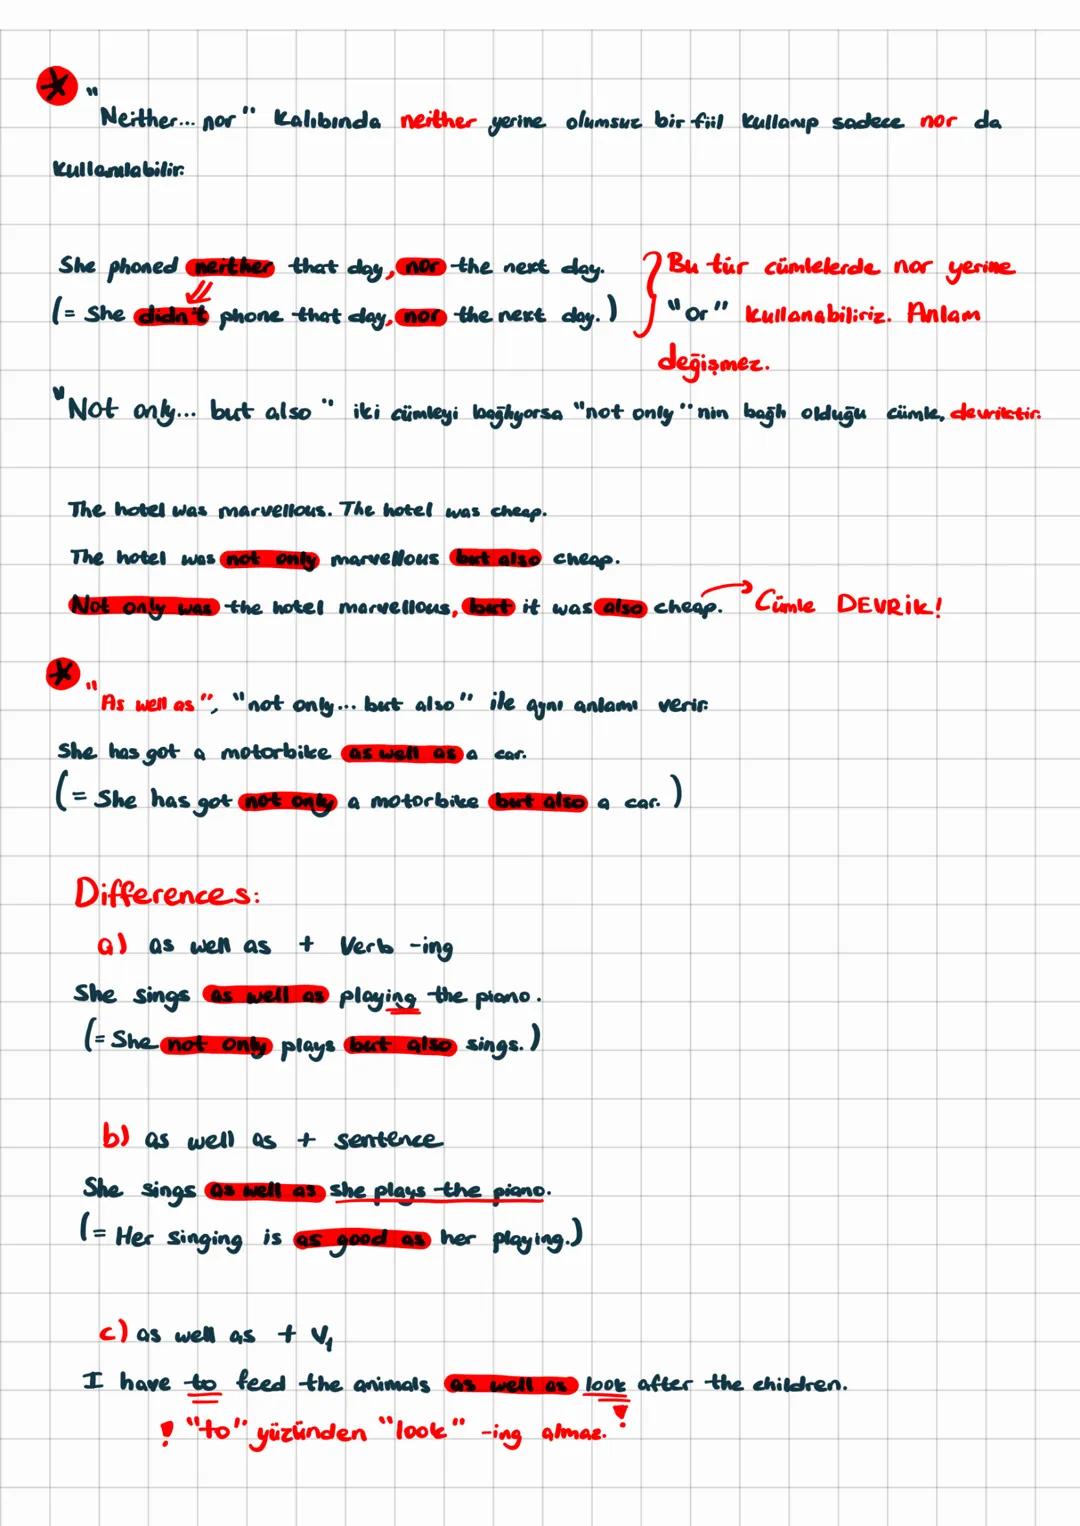 "Neither... nor" kalıbında neither yerine olumsuz bir fiil kullanıp sadece nor da
kullanılabilir.
She phoned neither that day, nor the next day.
(= She didn't phone that day, nor the next day.)
Bu tür cümlelerde nor yerine
"or" kullanabiliriz. Anlam
değişmez.
"Not only... but also" iki cümleyi bağlıyorsa "not only"nin bağlı olduğu cümle, devriktir.
The hotel was marvellous. The hotel was cheap.
The hotel was not only marvellous but also cheap.
Not only was the hotel marvellous, but it was also cheap. → Cümle DEVRİK!
"As well as", "not only... but also" ile aynı anlamı verir.
She has got a motorbike as well as a car.
(= She has got not only a motorbike but also a car.)
Differences:
a) as well as + Verb -ing
She sings as well as playing the piano.
(= She not only plays but also sings.)
b) as well as + sentence
She sings as well as she plays the piano.
(= Her singing is as good as her playing.)
c) as well as + V1
I have to feed the animals as well as look after the children.
! "to" yüzünden "look" -ing almaz.